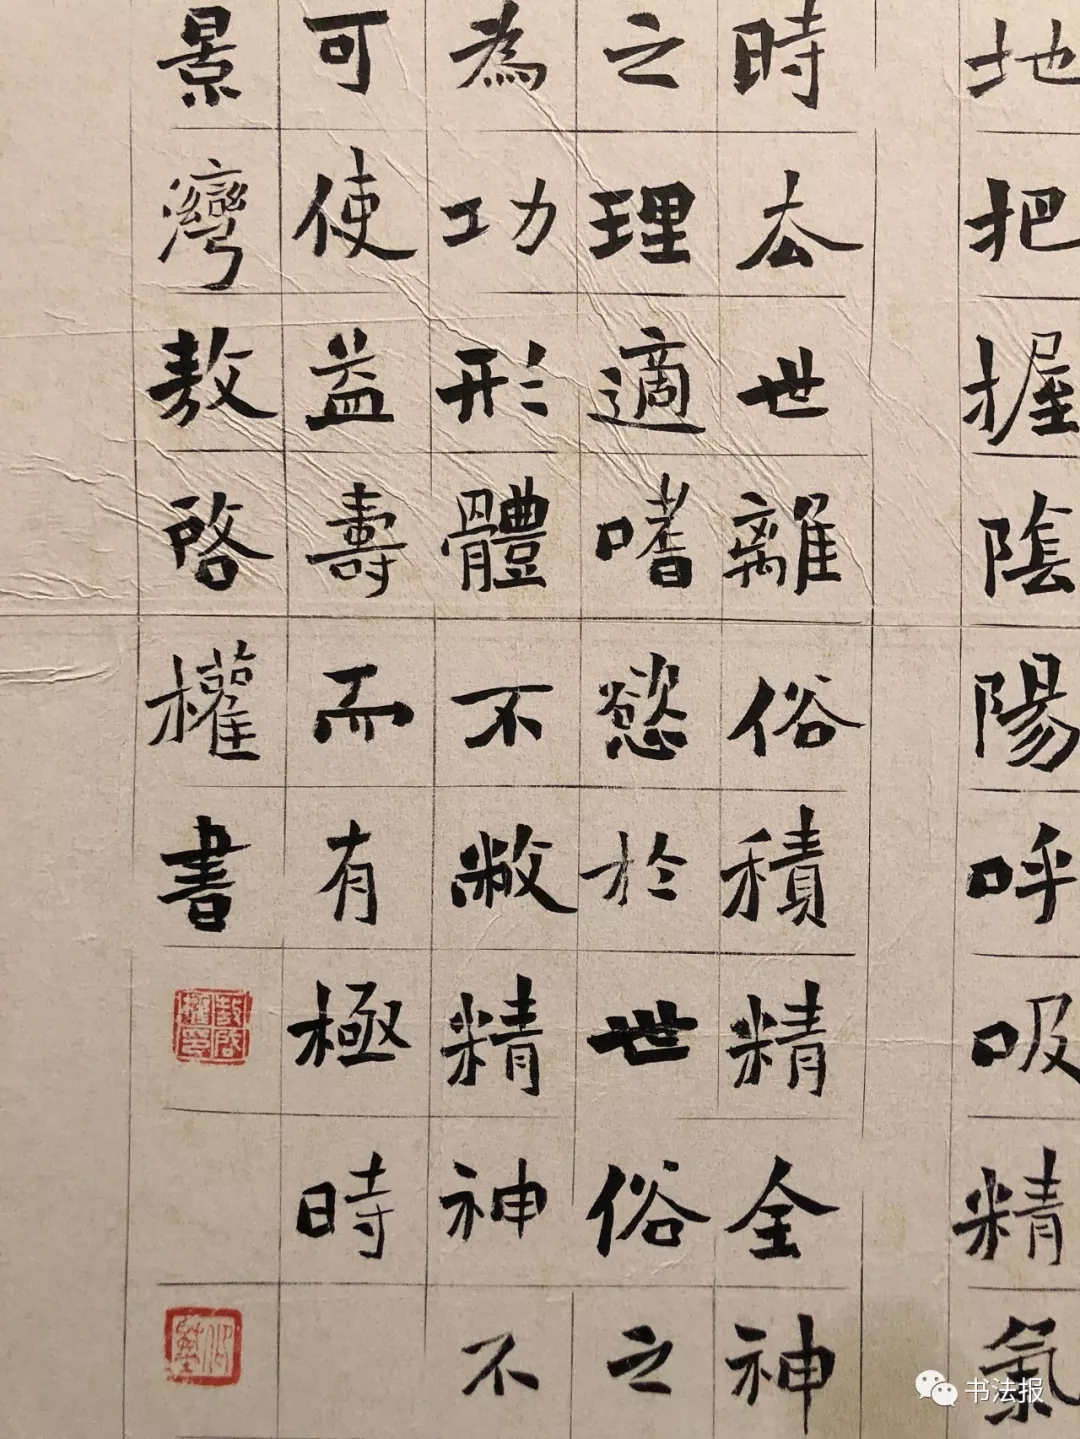 地把握陰陽呼吸精氣
時去世離俗積精全神
之理適嗜慾於世俗之
為功形體不敝精神不
可使益壽而有極時
景灣敖啓權書
敖啓權印
书法报